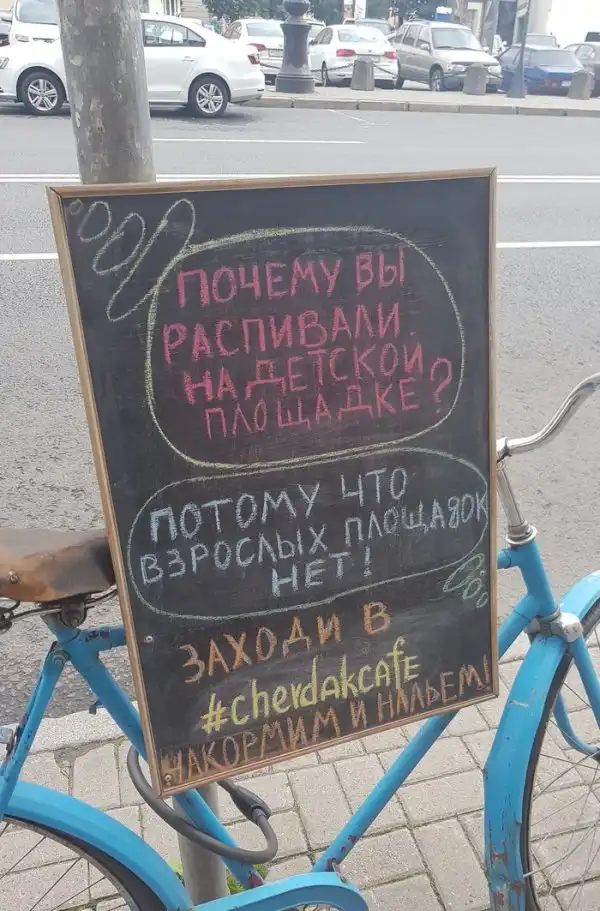 ПОЧЕМУ ВЫ
РАСПИВАЛИ
НА ДЕТСКОЙ
ПЛОЩАДКЕ?
ПОТОМУ ЧТО
ВЗРОСЛЫХ ПЛОЩАДОК
НЕТ!
ЗАХОДИ В
#cherdakcafe
НАКОРМИМ И НАЛЬЕМ!